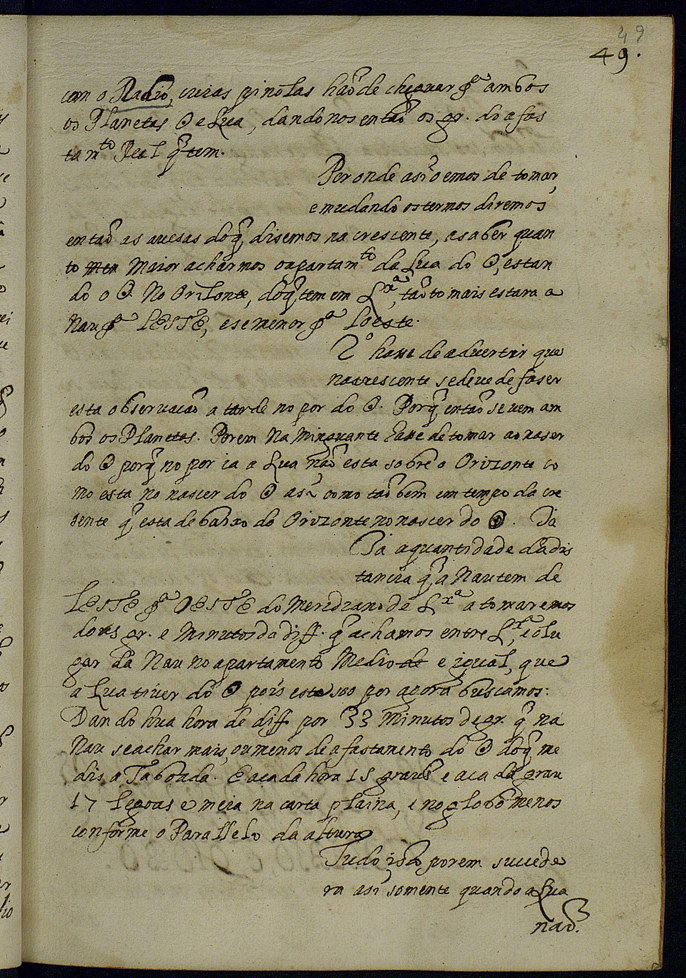 49
49.
com o Radio, cuias pinolas hão de chegar pª ambos
os Planetas ʘ e Lua, dando nos então os gr. do afas
tamto Real q̃ tem.
Per onde asi o emos de tomar
e mudando os termos diremos
entaõ as avesas do q̃ disemos na crescente, a saber quan
to Maior acharmos o apartamto da Lua do ʘ, estan
do o ʘ No Orizonte, do q̃ tem em Lxª, taõto mais estara a
Nau pª LESTE, e se menor pª Loeste.
2º ha se de advertir que
na crescente se deve de faser
esta observaçaõ a tarde no por do ʘ. Porq̃ entaõ se vem am
bos os Planetas. Porem Na Minguante ha se de tomar ao naser
do ʘ porq̃ no por ia a Lua naõ esta sobre o Orizonte co
mo esta no nascer do ʘ asi como taõbem em tempo da cre
sente q̃ esta de baixo do Orizonte no nascer do ʘ. Ia
Ia a quantidade da dis
tancia q̃ a Nau tem de
LESTE pª OESTE do Meridiano de Lxª a tomaremos
dos gr. e Minutos da diff. q̃ achamos entre Lxª, e o lu
gar da Nau no apartamento Medio e igual, que
a Lua tiver do ʘ pois este so por agora buscamos:
Dando hua hora de diff por 33 Minutos de gr. q̃ na
Nau se achar mais, ou menos de afastamento do ʘ do q̃ me
dis a Taboada. E a cada hora 15 graus e a cada grau
17 legoas e meia na carta plaina, e no globo menos
conforme o Parallelo da altura
Tudo isto porem succede
ra asi somente quando a Lua
naõ.